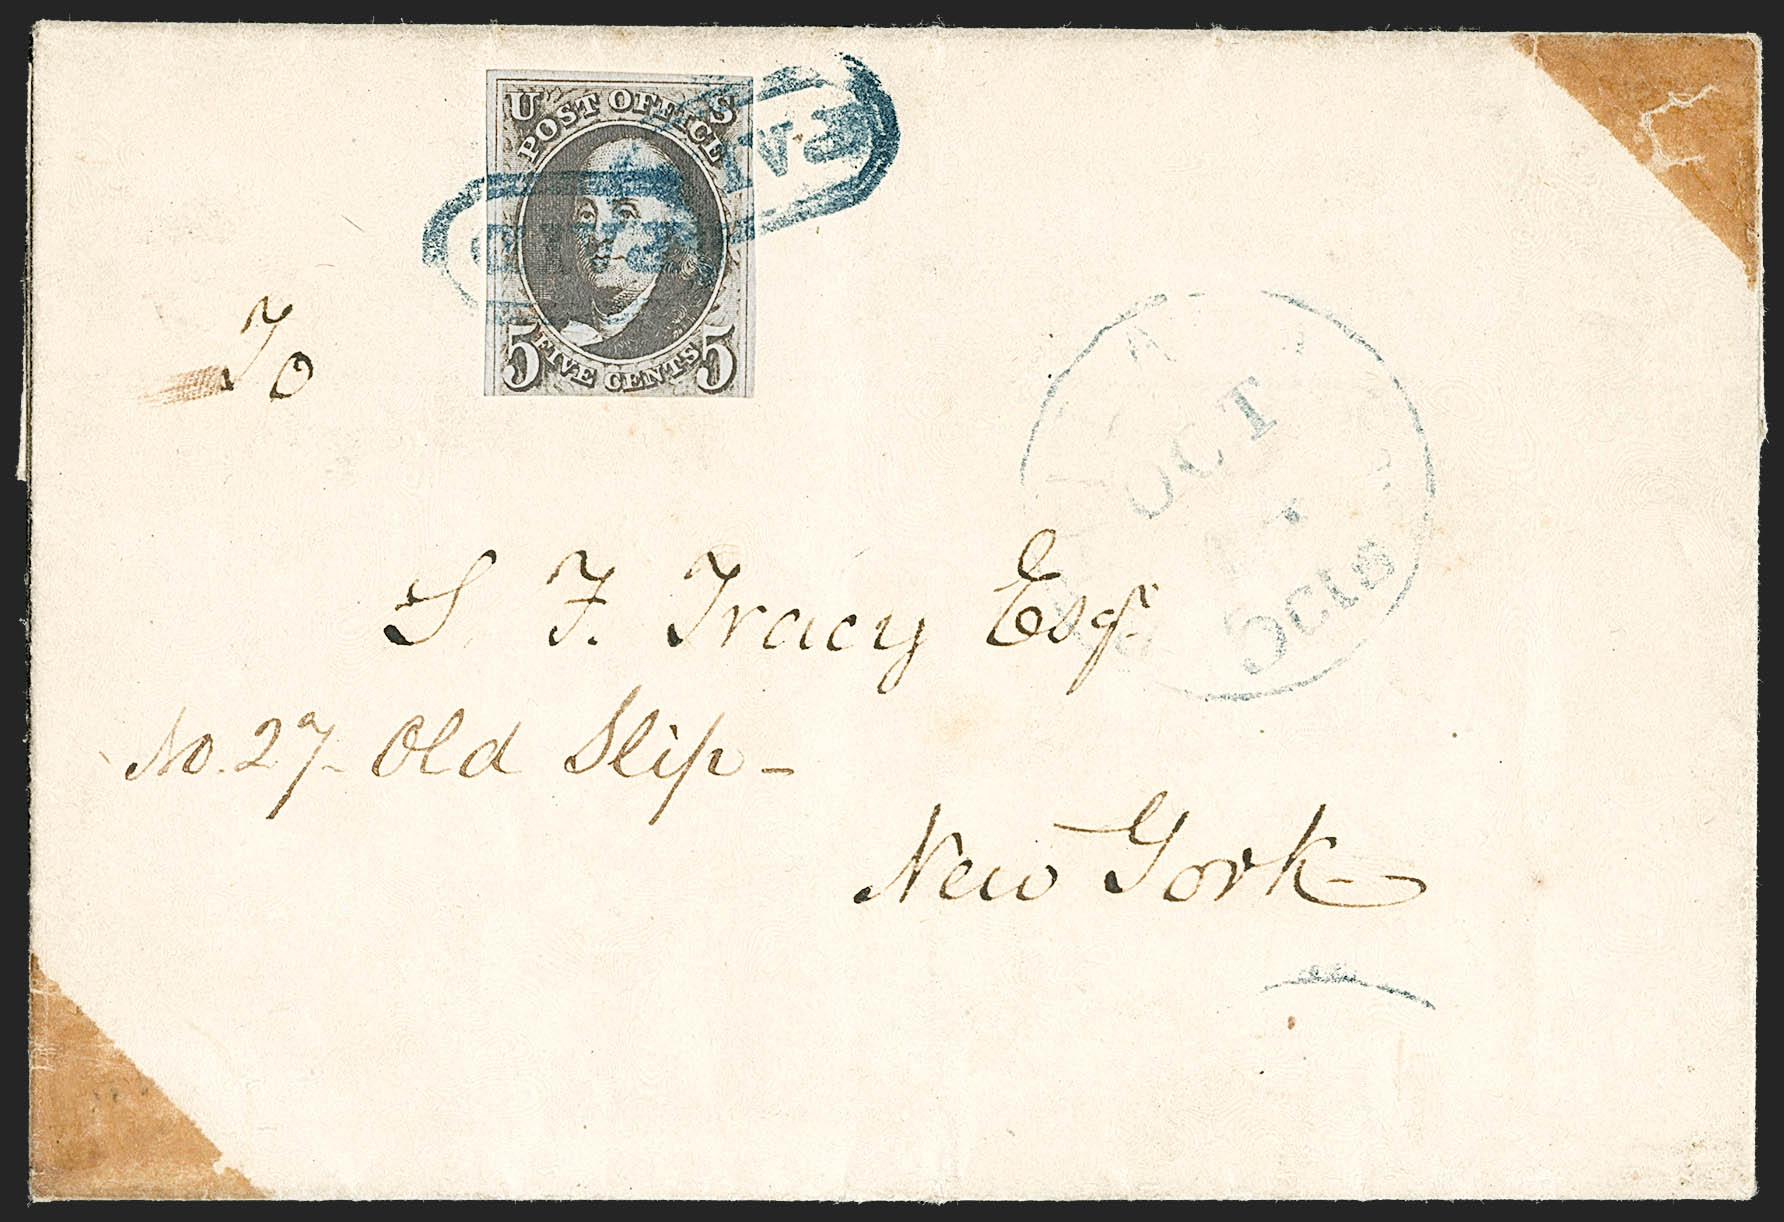 U S
POST OFFICE
FIVE CENTS
5 5
PAID
PAI
To
OCT
5 cts
S. F. Tracy Esqr.
No. 27 - Old Slip -
New York